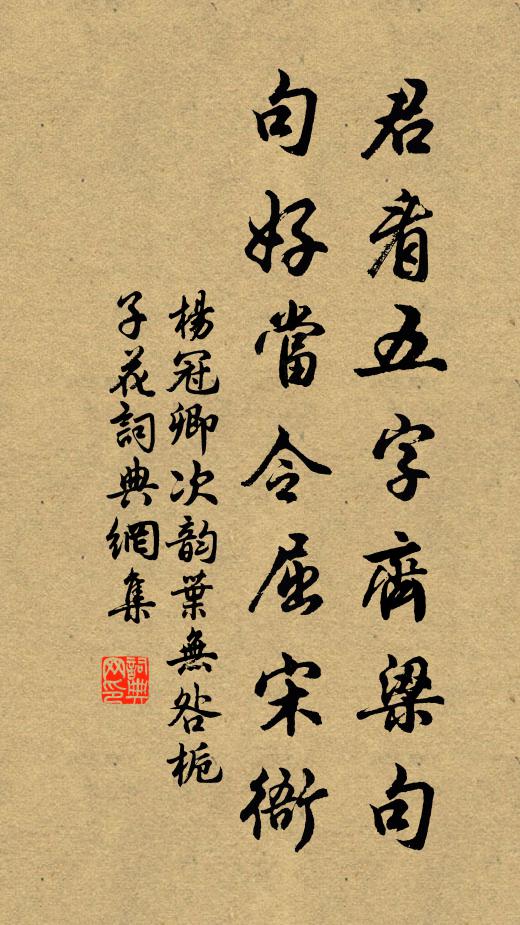 君看五字齊梁句
句好當令屈宋衙
楊冠卿次韵葉無咎梔
子花詞典網集
詞典網印